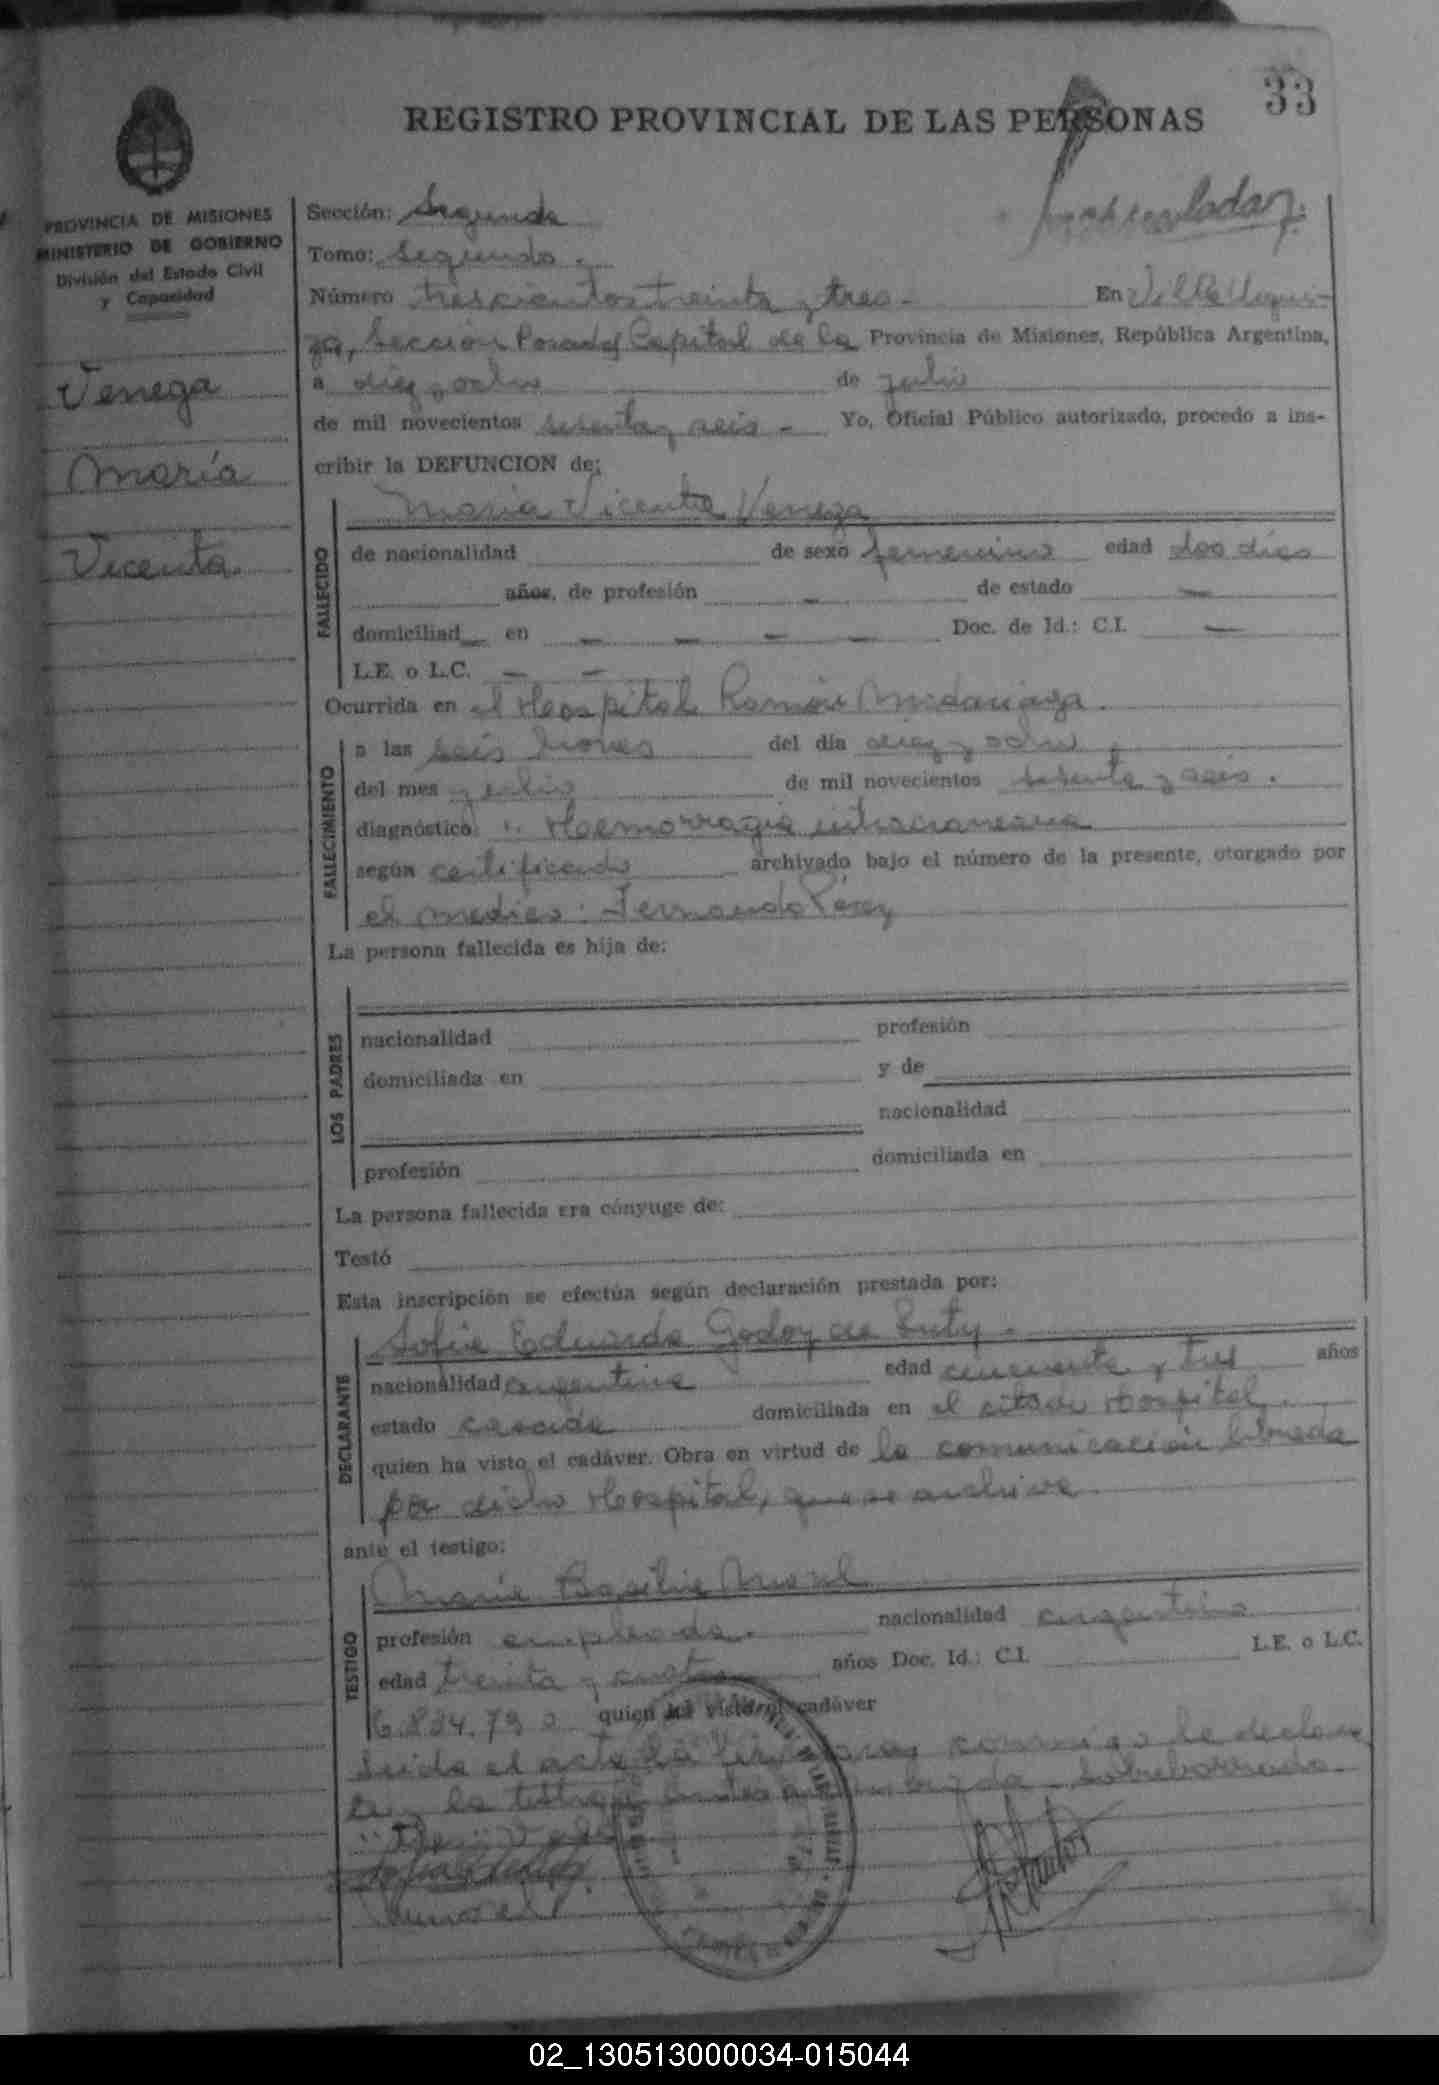 33
REGISTRO PROVINCIAL DE LAS PERSONAS
PROVINCIA DE MISIONES
MINISTERIO DE GOBIERNO
División del Estado Civil
y Capacidad
Venega
María
Vicenta
Sección: Segunda
Tomo: Segundo.
Número trescientos treinta y tres - En Villa Urqui-
za, Sección Posadas Capital de la Provincia de Misiones, República Argentina,
a diez y ocho de julio
de mil novecientos sesenta y seis - Yo, Oficial Público autorizado, procedo a ins-
cribir la DEFUNCION de:
María Vicenta Venega
FALLECIDO
de nacionalidad de sexo femenino edad dos días
años, de profesión - de estado -
domiciliad en - - - - Doc. de Id.: C.I. -
L.E. o L.C. - -
Ocurrida en el Hospital Ramón Madariaga.
FALLECIMIENTO
a las seis horas del día diez y ocho
del mes julio de mil novecientos sesenta y seis.
diagnóstico: Hemorragia intracraneana
según certificado archivado bajo el número de la presente, otorgado por
el médico: Fernando Pérez
La persona fallecida es hija de:
LOS PADRES
nacionalidad profesión
domiciliada en y de
nacionalidad
profesión domiciliada en
La persona fallecida era cónyuge de:
Testó
Esta inscripción se efectúa según declaración prestada por:
DECLARANTE
Sofía Eduarda Godoy de
nacionalidad argentina edad cincuenta y tres años
estado casada domiciliada en el citado Hospital.
quien ha visto el cadáver. Obra en virtud de la comunicación librada
por dicho Hospital, que se archiva
ante el testigo:
TESTIGO
María Basilia
profesión empleada. nacionalidad argentina
edad treinta y cuatro años Doc. Id.: C.I. L.E. o L.C.
quien ha visto el cadáver
Leída el acta la firman conmigo la declaran
te y la testigo Sobreborrado
02_130513000034-015044